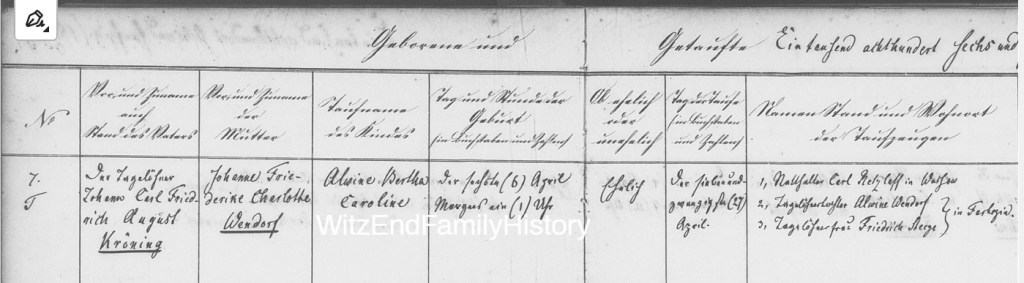 Geborene und Getaufte Eintausend achthundert sechs und
No
Vor- und Zuname
auch
Stand des Vaters
Vor- und Zuname
der
Mutter
Taufname
des Kindes
Tag und Stunde der
Geburt
(in Buchstaben und Zahlen)
Ob ehelich
oder
unehelich
Tag der Taufe
(in Buchstaben
und Zahlen)
Namen Stand und Wohnort
der Taufzeugen
7.
Der Tagelöhner
Johann Carl Fried-
rich August
Kröning
Johanne Frie-
derike Charlotte
Wendorf
Alwine Bertha
Caroline
Der sechste (6) April
Morgens ein (1) Uhr
Ehelich
Der sieben und
zwanzigste (27)
April.
1, Statthalter Carl in
2, Alwine Wendorf
3, Tagelöhnerfrau Friedrich
in
WitzEndFamilyHistory